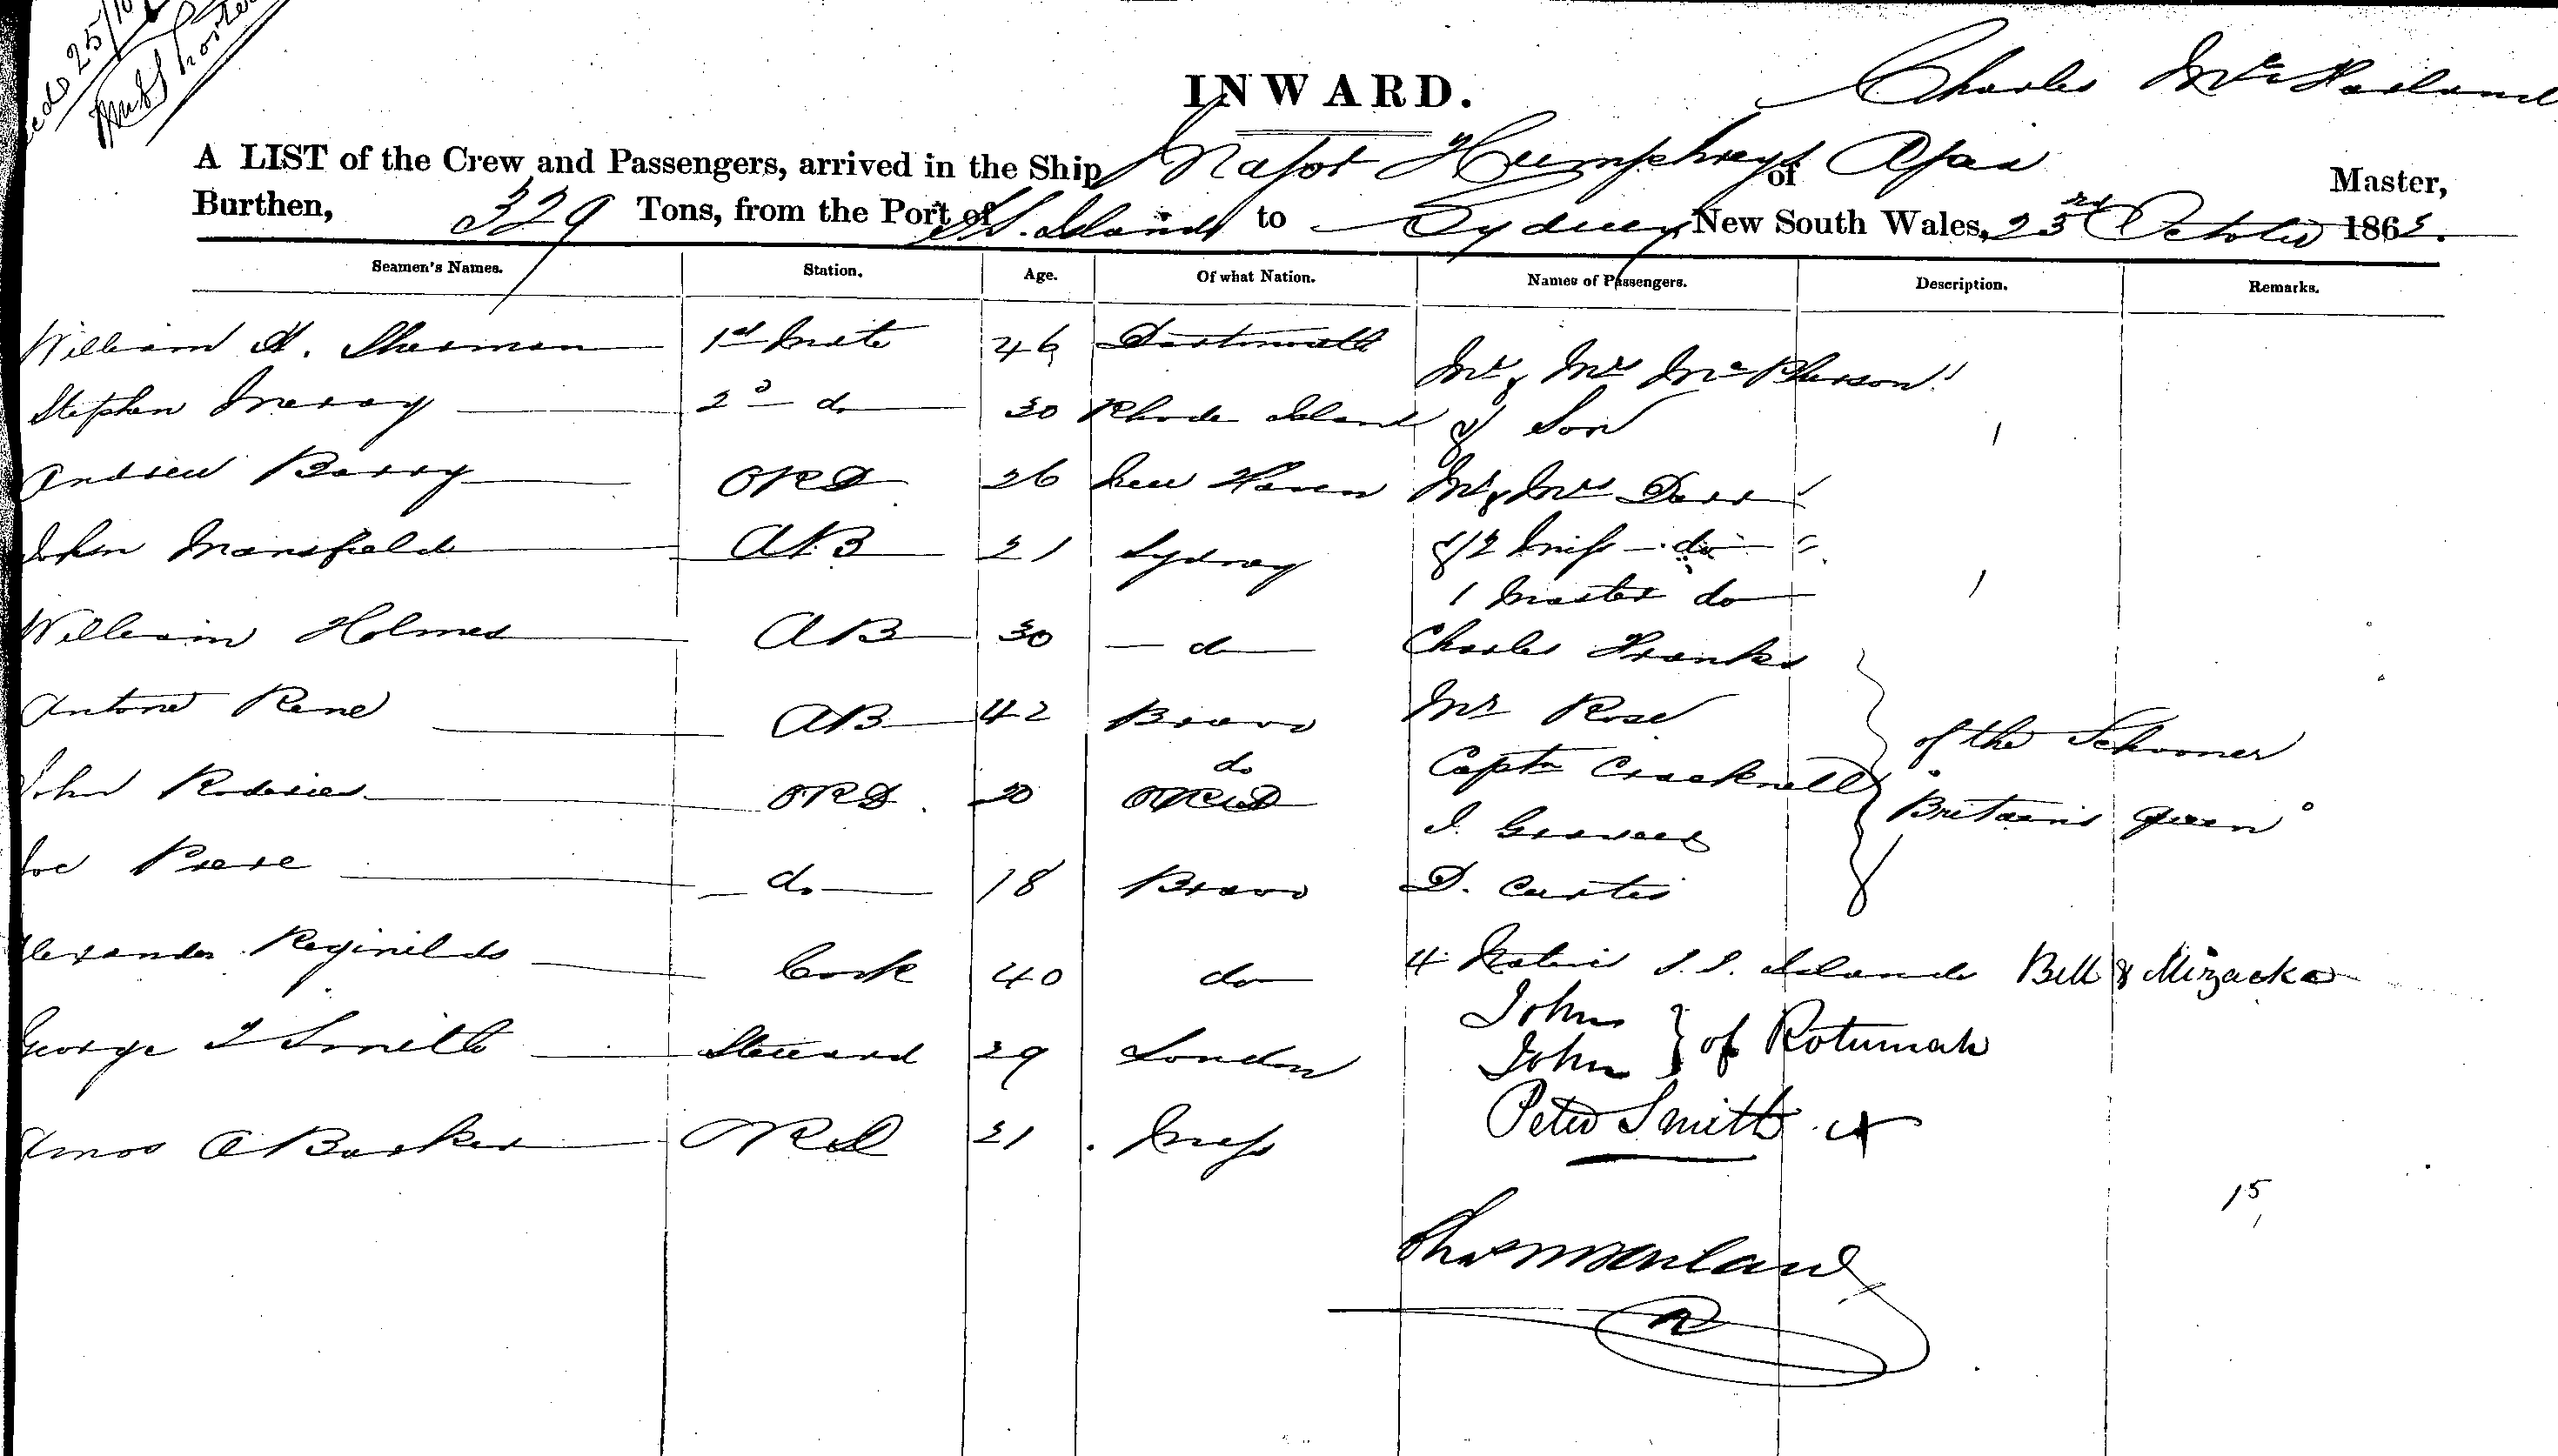 INWARD.
Charles Mc
A LIST of the Crew and Passengers, arrived in the Ship Major Humphreys of Apia Master,
Burthen, 329 Tons, from the Port of S.S. Islands to Sydney, New South Wales, 23rd October 186
Seamen's Names. Station. Age. Of what Nation. Names of Passengers. Description. Remarks.
William H. Sherman 1st Mate 46 Dartmouth Mr & Mrs McPherson
Stephen 2d do 30 Rhode Island & Son
Andrew Barry ORD 26 New Haven Mr & Mrs
John Mansfield AB 21 Sydney & 2 Miss do
1 Master do
William Holmes AB 30 do Charles Franks
Antone AB 42 Bravo Mr Rose of the Schooner
John ORD 20 do Captn Cracknell "Britain's Queen"
J. Graves
Joe do 18 Bravo D. Curtis
Alexander Reginilds Cook 40 do 4 Natives S.S. Islands Bill & Mizacka
John
George T Smith Steward 29 London John } of Rotumah
Amos A Barker ORD 21 Mass Peter Smith
15